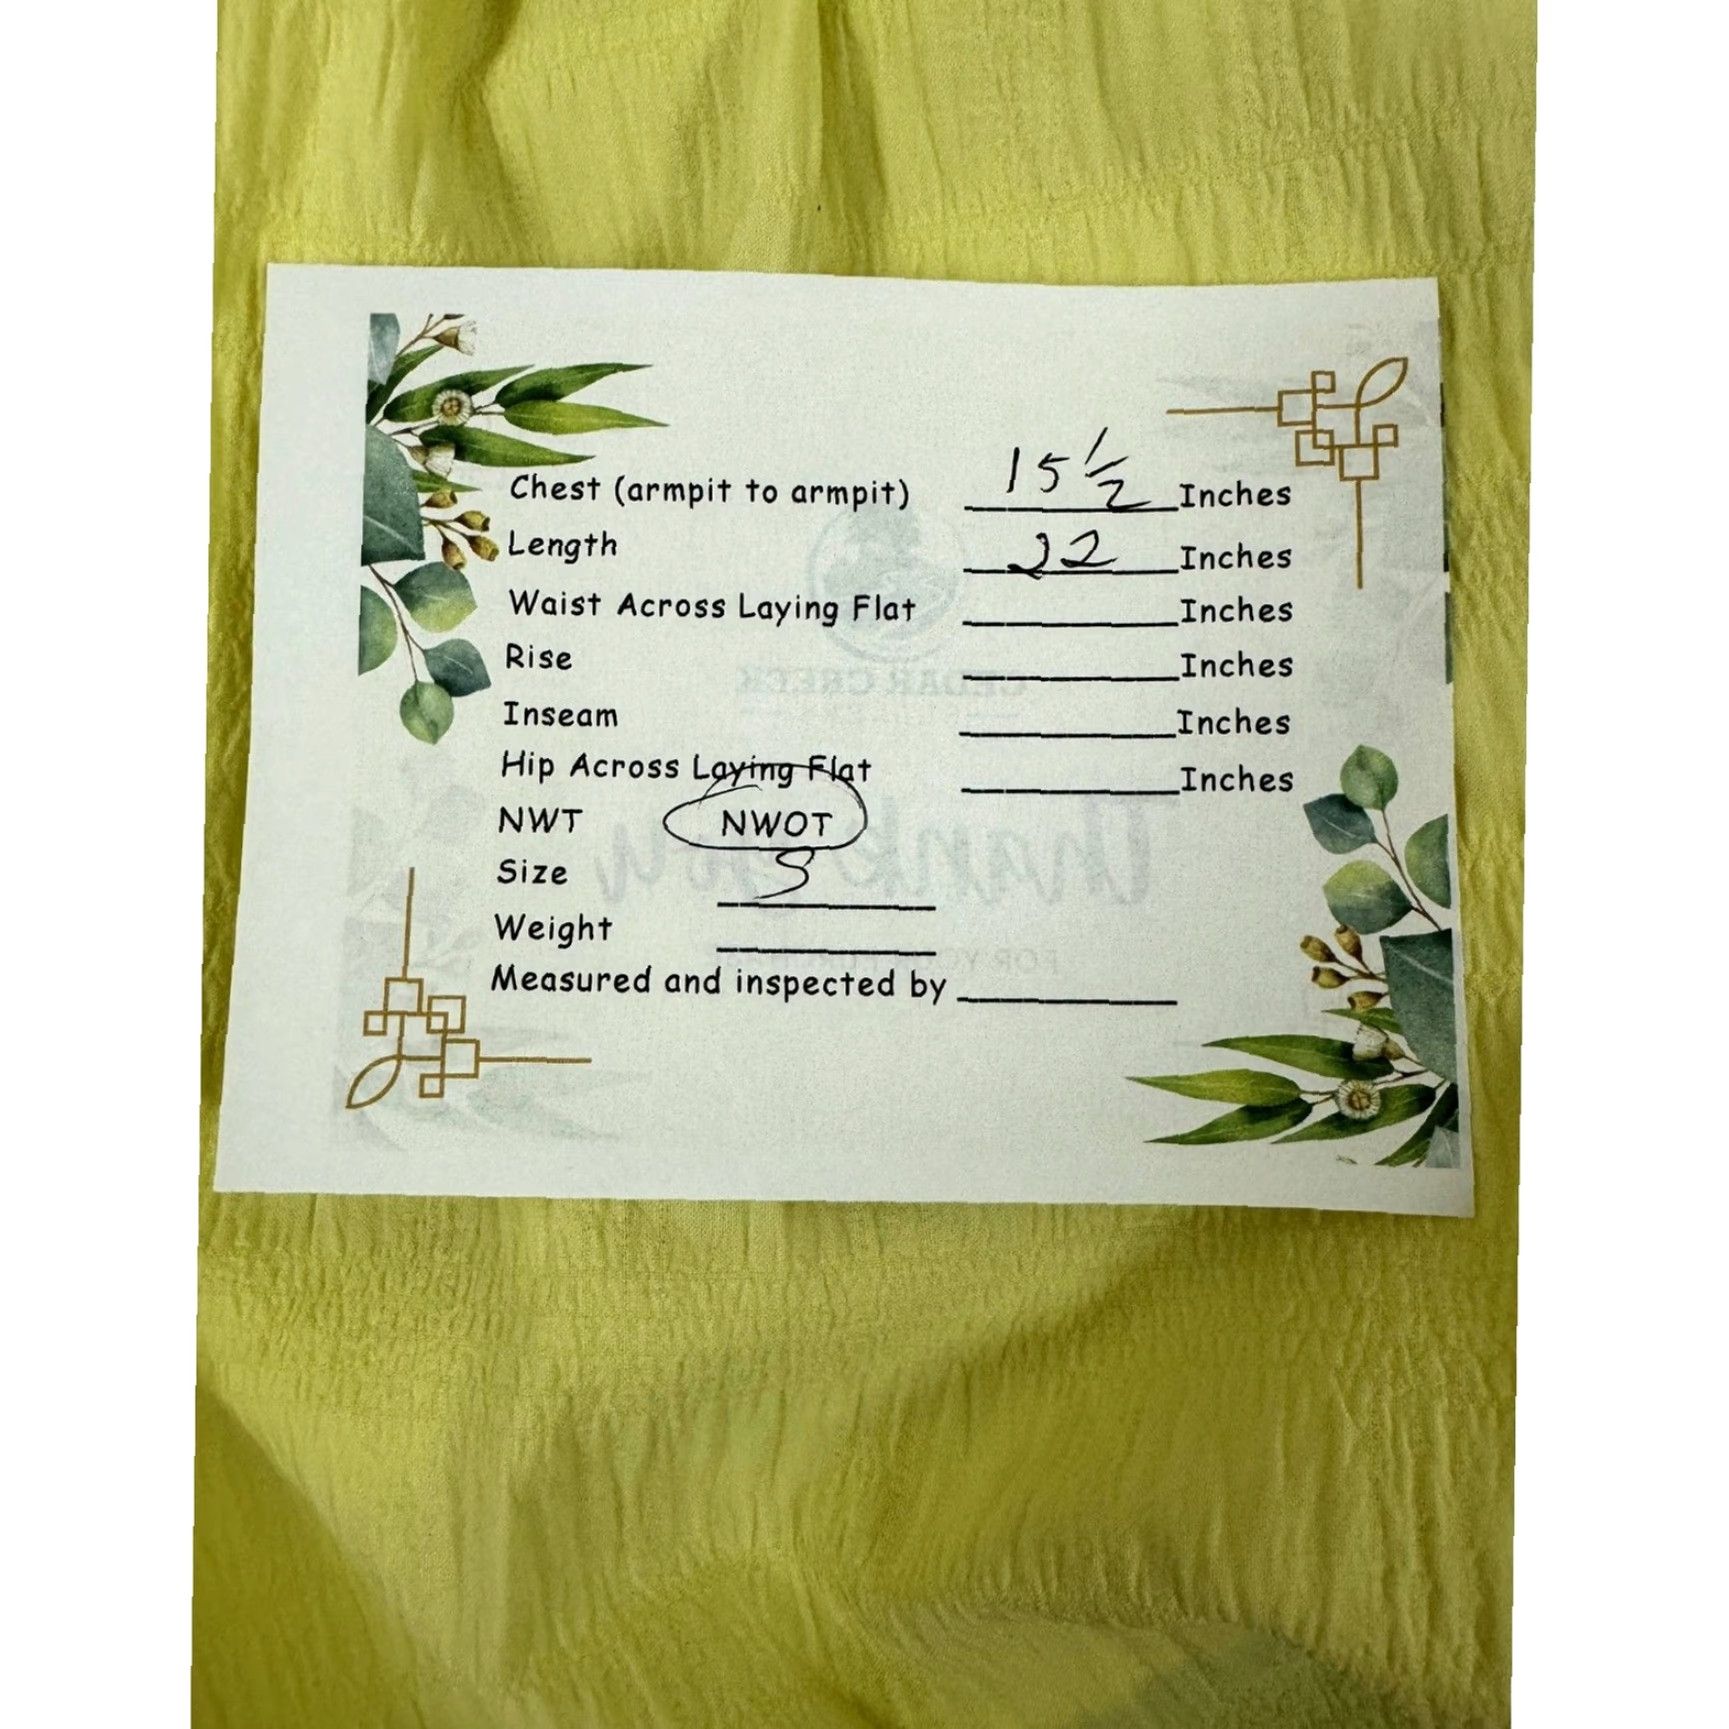 Chest (armpit to armpit) 15 1/2 Inches
Length 22 Inches
Waist Across Laying Flat ____________ Inches
Rise ____________ Inches
Inseam ____________ Inches
Hip Across Laying Flat ____________ Inches
NWT NWOT
Size S
Weight ____________
Measured and inspected by ____________
CEDAR CREEK
Thank you